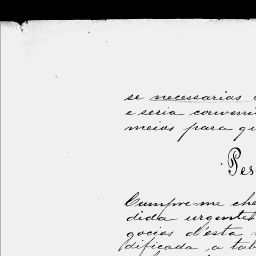 se necessarias
e seria conveni
meios para qu
Pes
Cumpre-me che
dida urgente
gocios d'esta
dificada, a tab